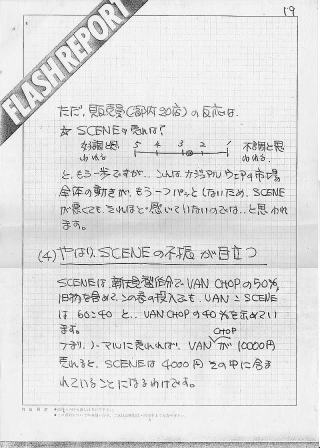 FLASH REPORT
19
ただ、販売員(都内20店)の反応は、
☆ SCENEの売れは?
好調と思われる 5 4 3 2 1 不調と思われる。
と、もう一歩ですが、こんなカジュアルウェアの市場
全体の動きが、もう一つパッとしないため、SCENE
が悪くても、それほど感じていないのでは…と思われ
ます。
(4) やはり、SCENEの不振が目立つ
SCENEは、 VAN CHOPの50%、
旧物を含めて、この春の投入でも、VAN:SCENE
は60:40と、VAN CHOPの40%を占めてい
ます。
つまり、ノーマルに売れれば、VAN CHOPが10000円
売れると、SCENEは4000円その中に含ま
れていることになるわけです。